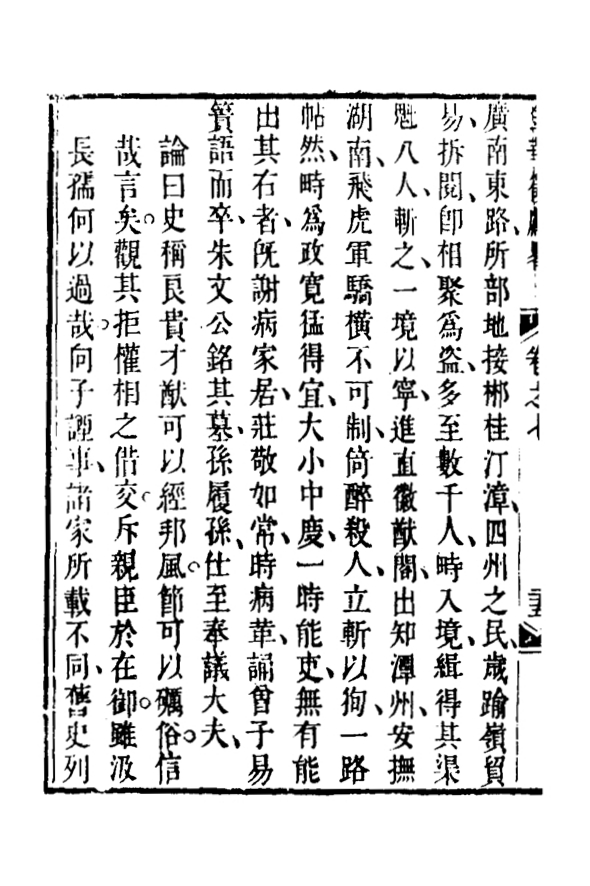 卷之
廣南東路、所部地接郴桂汀漳、四州之民、歲踰嶺貿
易、拆閱卽相聚爲盜、多至數千人、時入境、緝得其渠
魁八人、斬之、一境以寧、進直徽猷閣、出知潭州、安撫
湖南、飛虎軍驕橫不可制、倘醉殺人、立斬以狥、一路
帖然、時爲政寬猛得宜、大小中慶、一時能吏、無有能
出其右者、旣謝病家居、莊敬如常、時病革、誦曾子易
簀語而卒、朱文公銘其墓、孫履孫、仕至奉議大夫、
論曰史稱良貴才猷可以經邦。風節可以礪俗。信
哉言矣。觀其拒權相之偕交。斥親臣於在御。雖汲
長孺何以過哉。向子諲事、諸家所載不同、舊史列